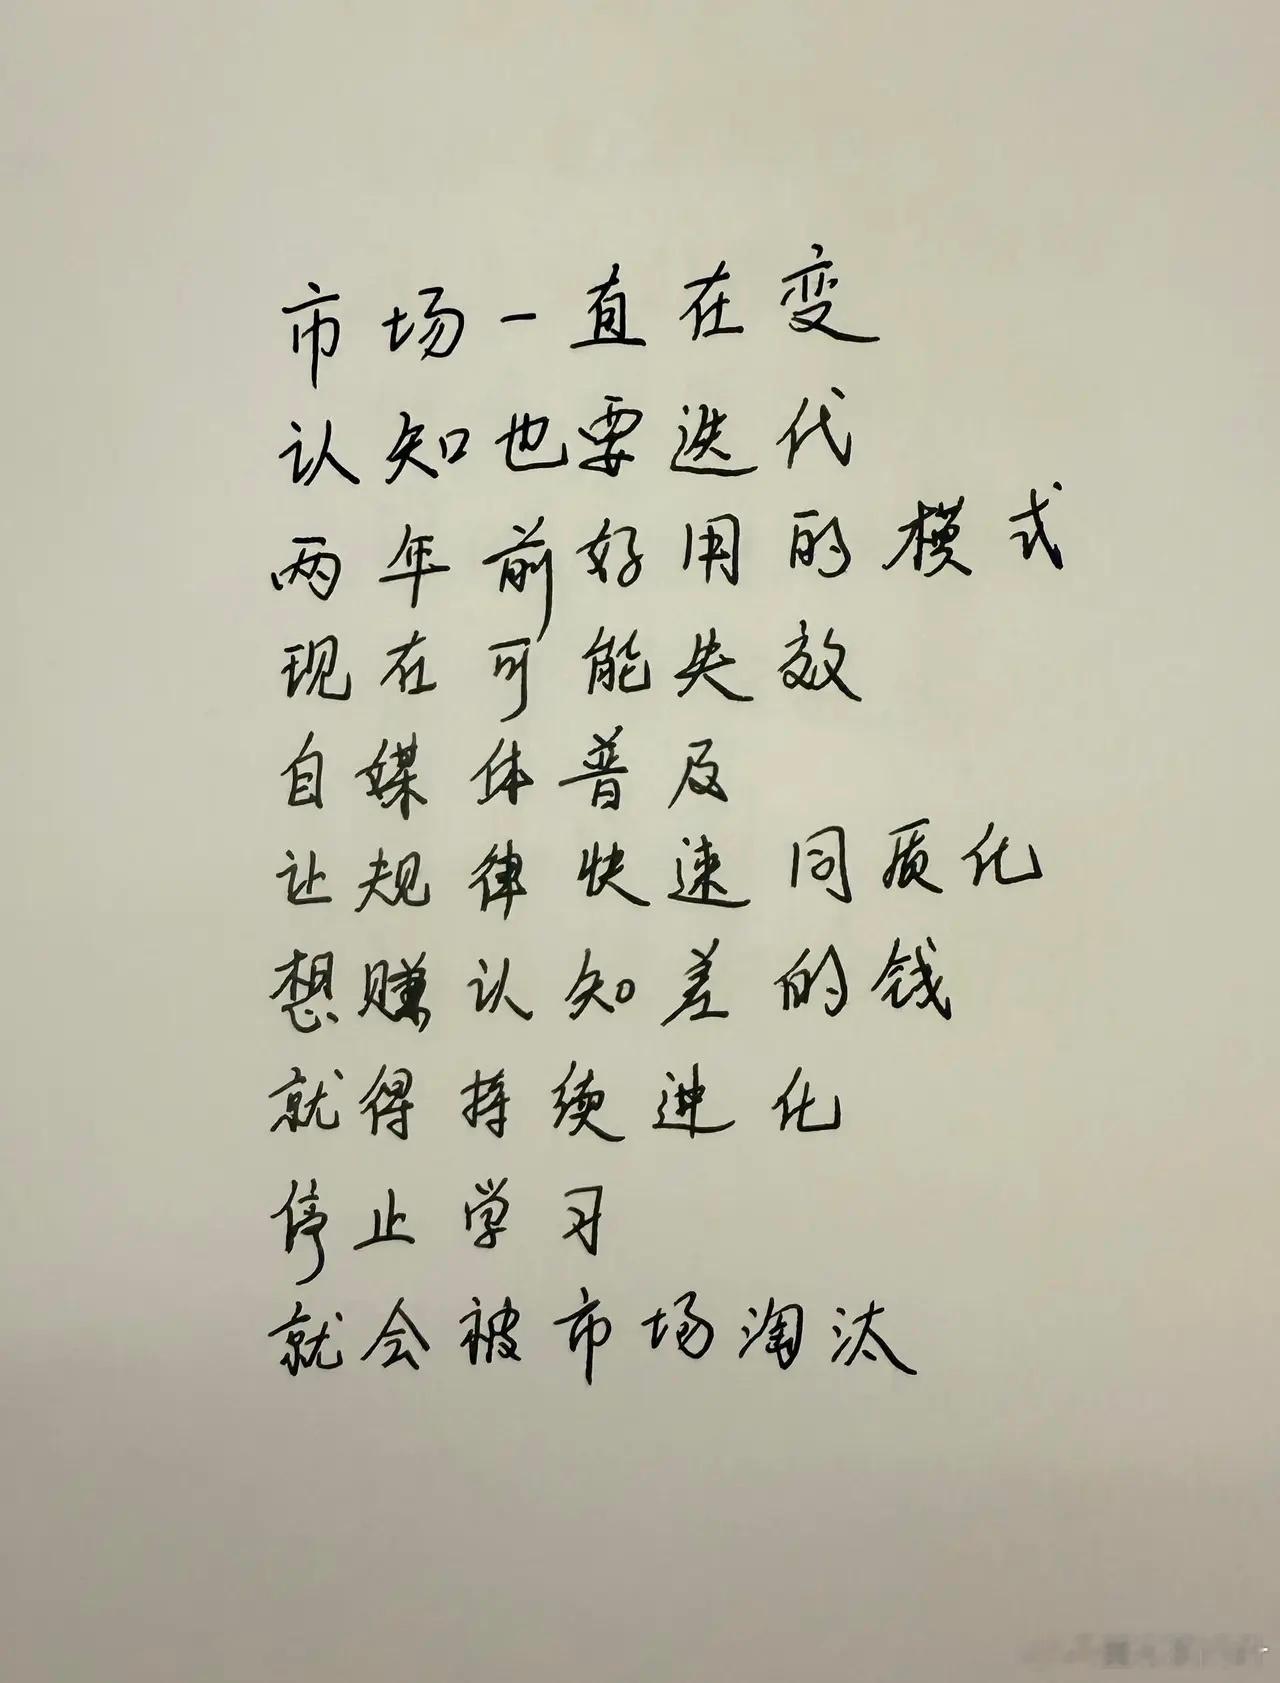 市场一直在变
认知也要迭代
两年前好用的模式
现在可能失效
自媒体普及
让规律快速同质化
想赚认知差的钱
就得持续进化
停止学习
就会被市场淘汰